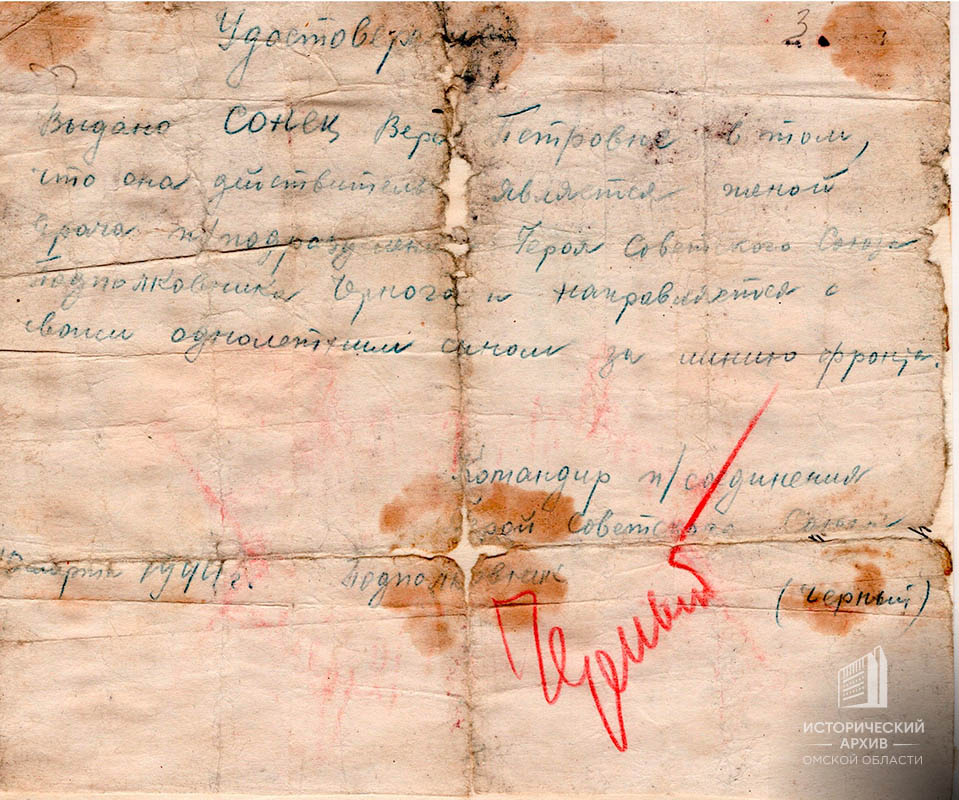 Удостоверение
3.
Выдано СОНЕЦ Вере Петровне в том,
что она действительно является женой
врача п/подразделения Героя Советского Союза
Подполковника Черного и направляется с
своим однолетним сыном за линию фронта.
Командир п/соединения
Герой Советского Союза
марта 1944 г. Подполковник
Черный
(Черный)
ИСТОРИЧЕСКИЙ
АРХИВ
ОМСКОЙ ОБЛАСТИ